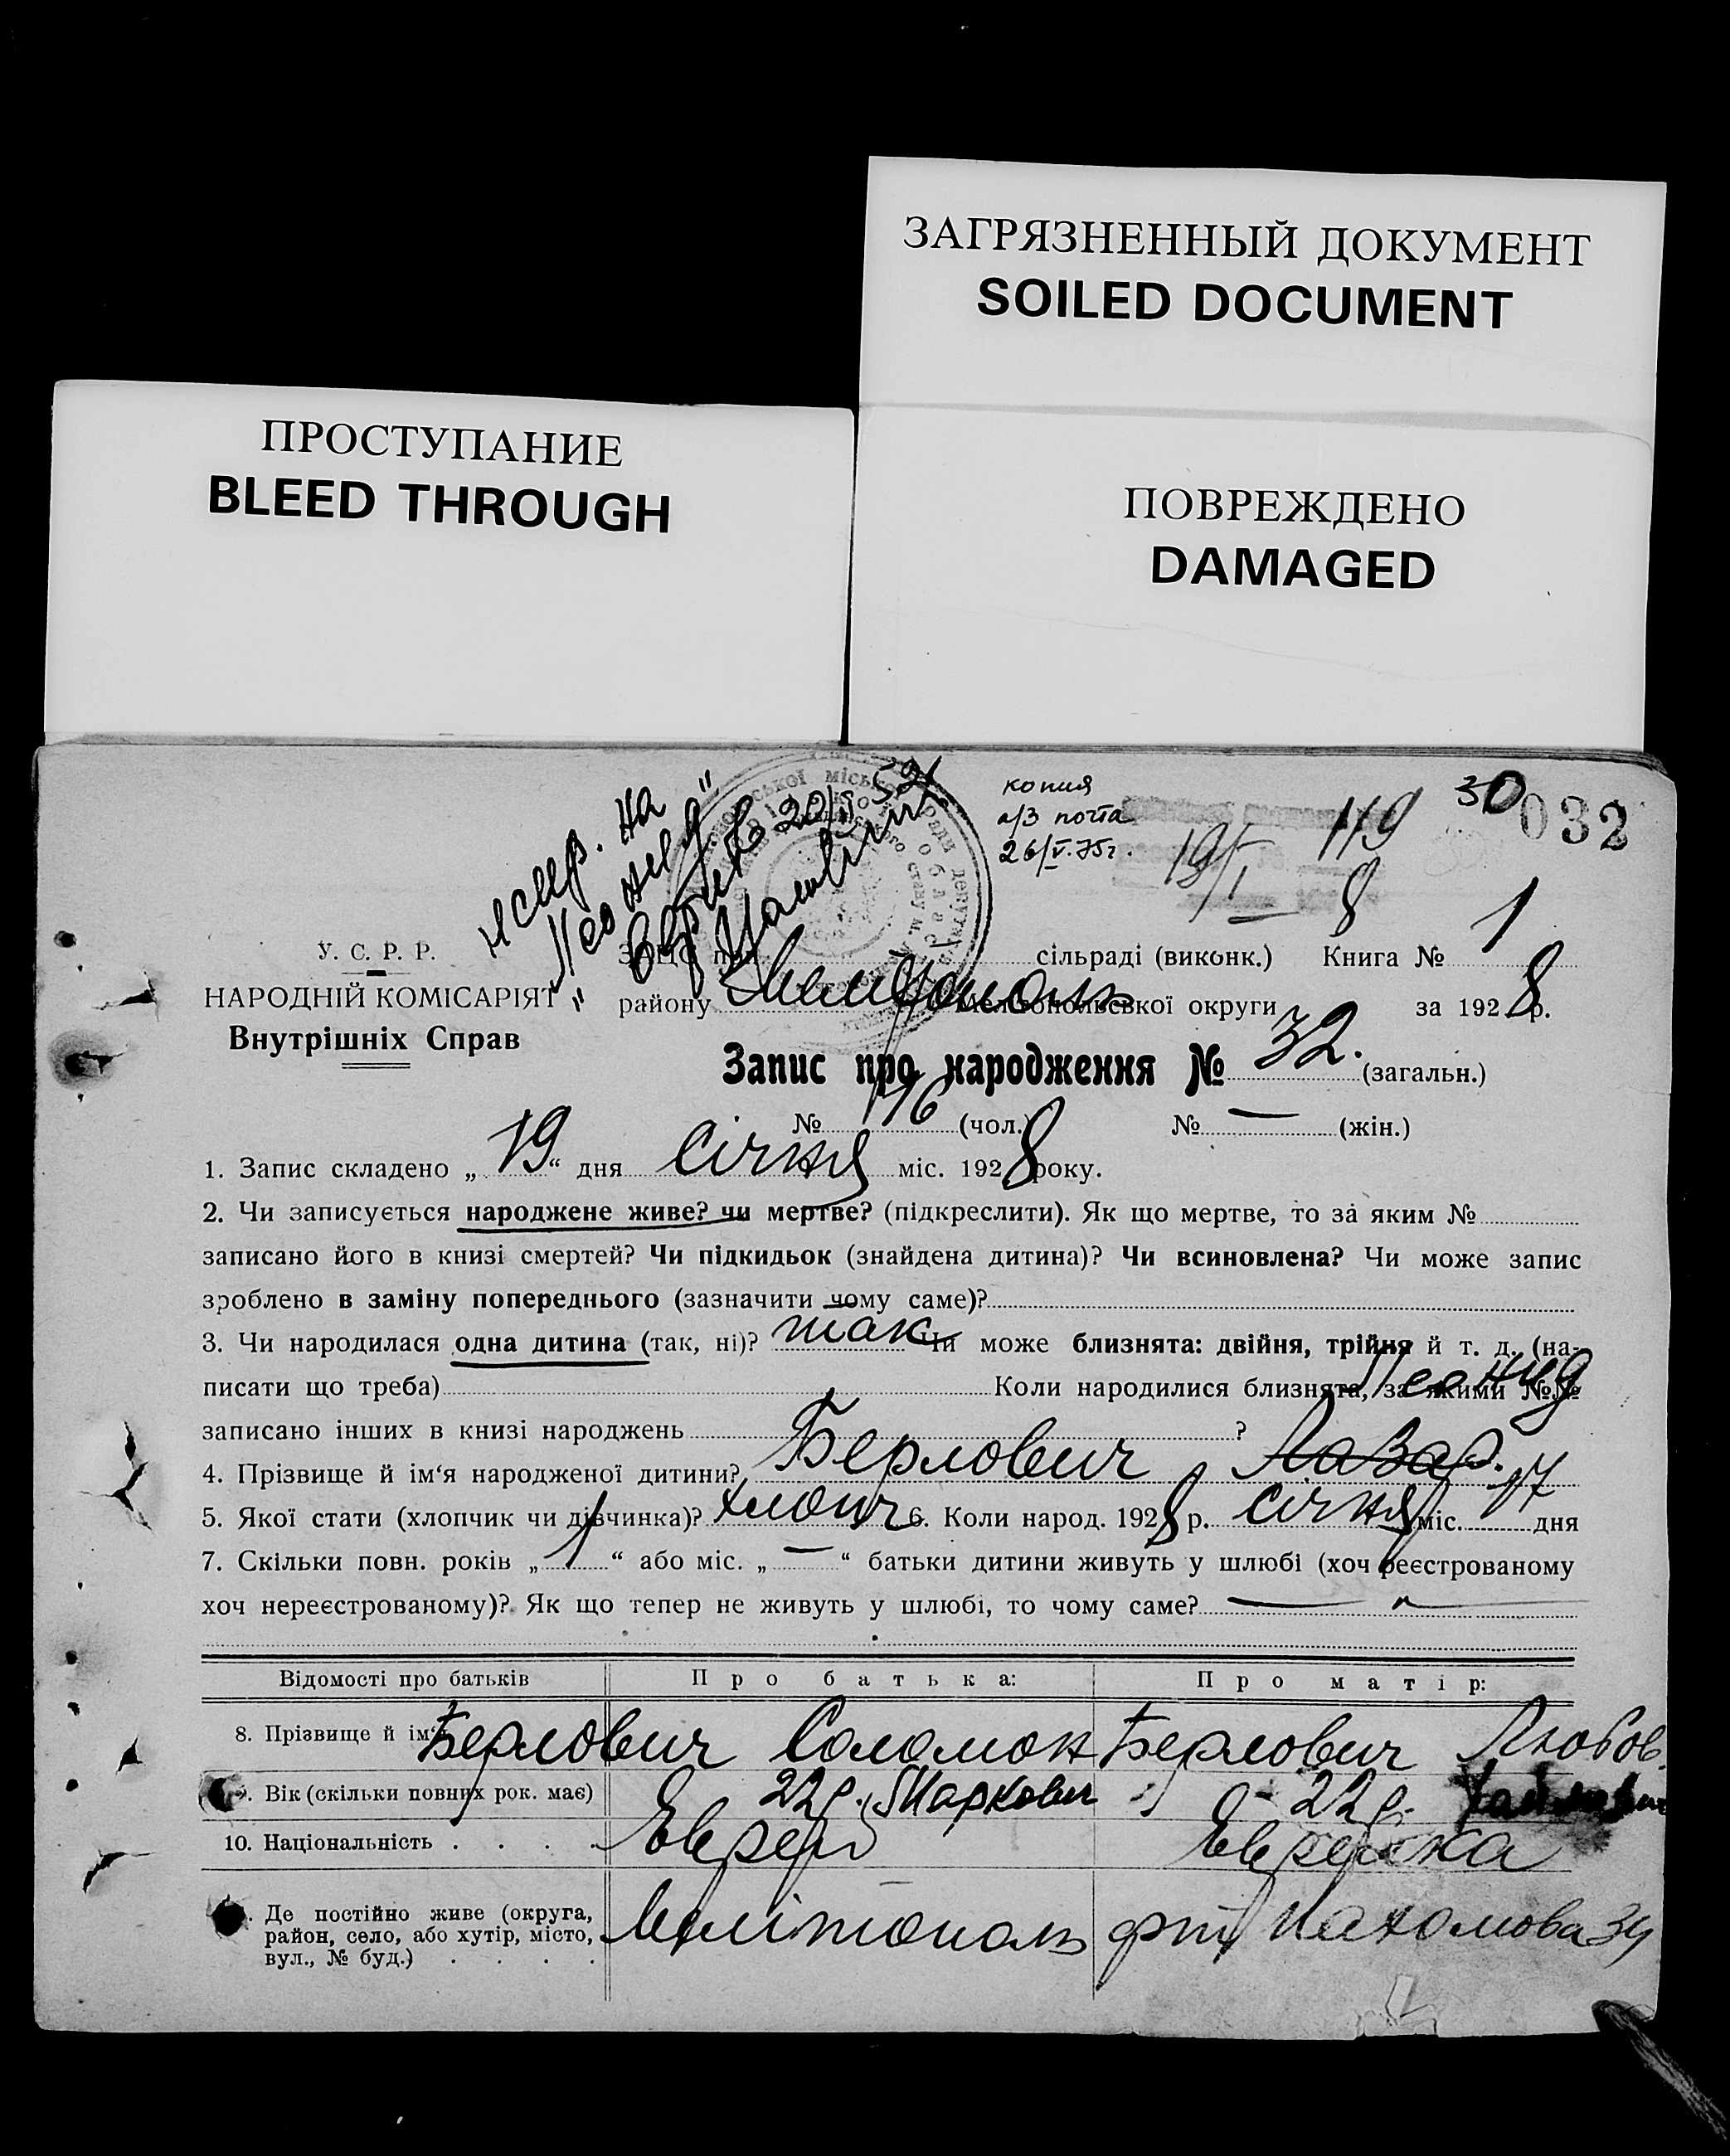 ЗАГРЯЗНЕННЫЙ ДОКУМЕНТ
SOILED DOCUMENT
ПРОСТУПАНИЕ
BLEED THROUGH
ПОВРЕЖДЕНО
DAMAGED
испр. на
"Леонид"
копия
а/з почта
26/V.75г.
19/I 8
119
30
032
У. С. Р. Р.
НАРОДНІЙ КОМІСАРІЯТ
Внутрішніх Справ
сільраді (виконк.) Книга № 1
району Мелітополь Мелітопольської округи за 1928 р.
Запис про народження № 32. (загальн.)
№ 16 (чол.) № — (жін.)
1. Запис складено „19“ дня Січня міс. 1928 року.
2. Чи записується народжене живе? чи мертве? (підкреслити). Як що мертве, то за яким №
записано його в книзі смертей? Чи підкидьок (знайдена дитина)? Чи всиновлена? Чи може запис
зроблено в заміну попереднього (зазначити чому саме)?
3. Чи народилася одна дитина (так, ні)? так Чи може близнята: двійня, трійня й т. д. (на-
писати що треба) Коли народилися близнята, за якими №№
записано інших в книзі народжень ? Леонид
4. Прізвище й ім‘я народженої дитини? Берлович Лазар.
5. Якої стати (хлопчик чи дівчинка)? хлопч 6. Коли народ. 1928 р. січня міс. 17 дня
7. Скільки повн. років „1“ або міс. „—“ батьки дитини живуть у шлюбі (хоч реєстрованому
хоч нереєстрованому)? Як що тепер не живуть у шлюбі, то чому саме? —
Відомості про батьків Про батька: Про матір:
8. Прізвище й ім‘я Берлович Соломон Берлович Любов
Маркович
9. Вік (скільки повних рок. має) 22р. 22р.
10. Національність . . . . Еврей Еврейка
Де постійно живе (округа,
район, село, або хутір, місто,
вул., № буд.) . . . . Мелітополь Пахомова 34